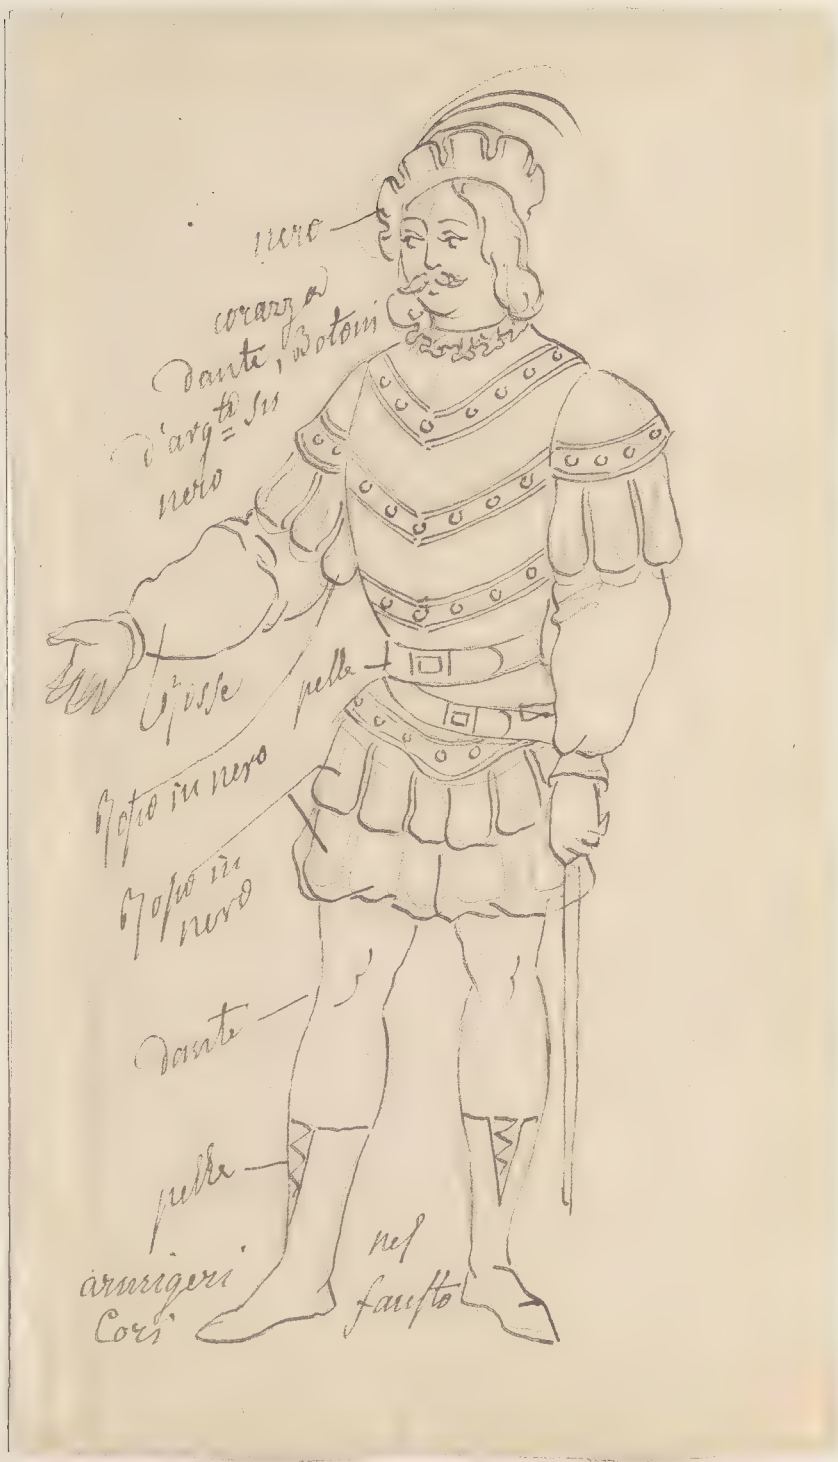 nero
corazza
dante, Botoni
d'argto su
nero
Rosse
pelle
Rosso in nero
Rosso in
nero
dante
pelle
armigeri
Cori
nel
fausto